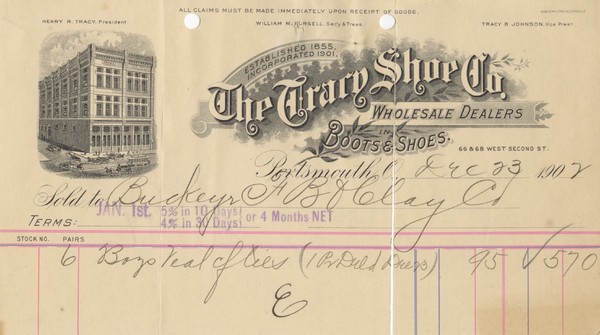 ALL CLAIMS MUST BE MADE IMMEDIATELY UPON RECEIPT OF GOODS.
HENRY R. TRACY, President
WILLIAM M. PURSELL, Sec'y & Treas.
TRACY B. JOHNSON, Vice Pres't
ESTABLISHED 1855.
INCORPORATED 1901.
The Tracy Shoe Co.
WHOLESALE DEALERS
IN
BOOTS & SHOES.
66 & 68 WEST SECOND ST.
Portsmouth, O., Dec 23 1902
Sold to Buckeye F B & Clay Co
TERMS: JAN. 1st. 5% in 10 Days or 4 Months NET
4% in 30 Days
STOCK NO. PAIRS
6 Boys Veal (1 Pr 95 √ 570
E